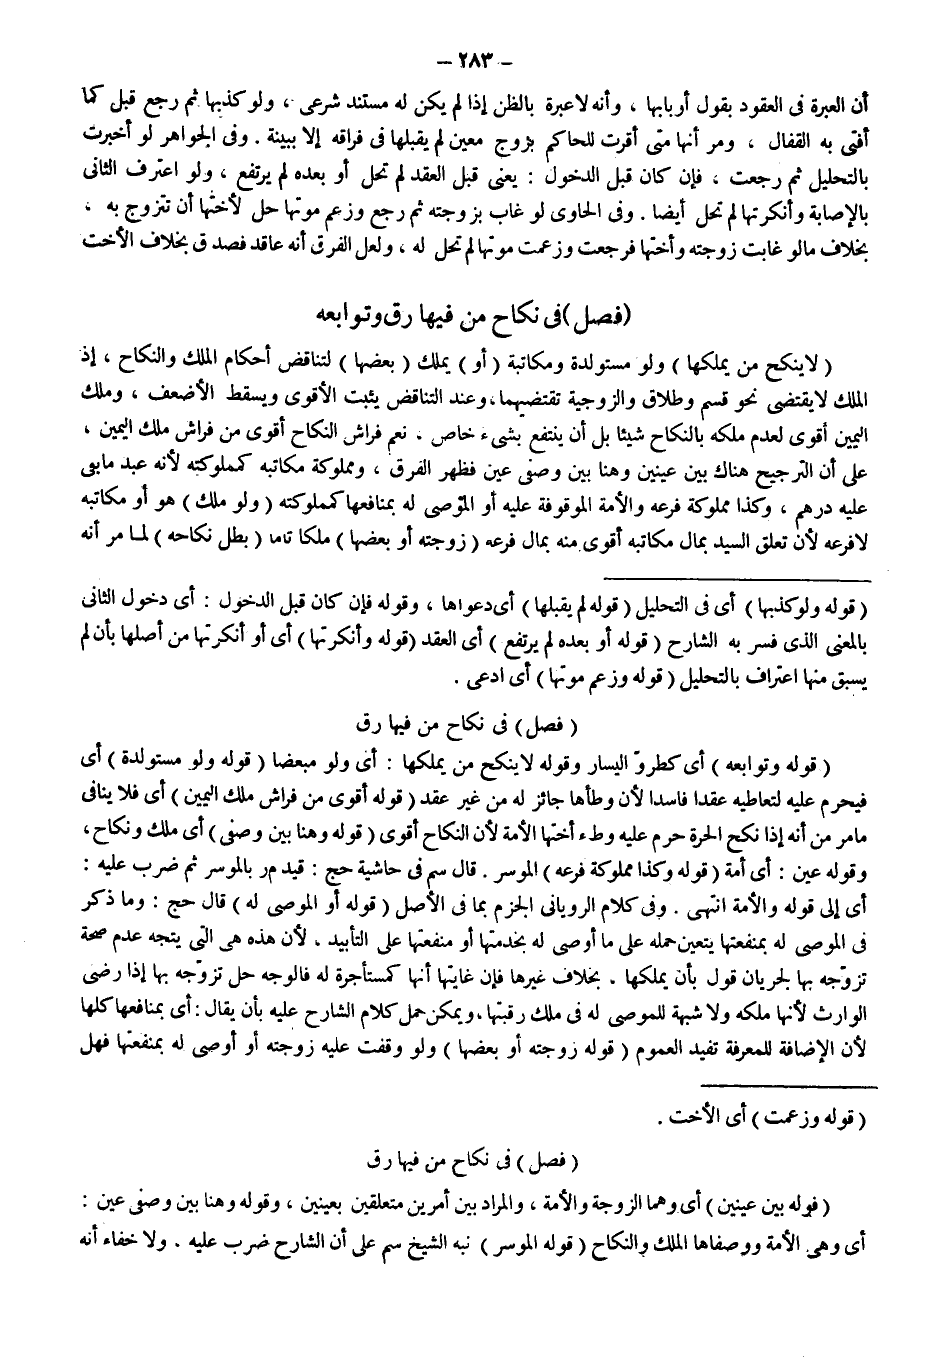 – ٢٨٣ –
أن العبرة فى العقود بقول أربابها ، وأنه لاعبرة بالظن إذا لم يكن له مستند شرعى ، ولو كذبها ثم رجع قبل كما
أفتى به القفال ، ومر أنها متى أقرت للحاكم بزوج معين لم يقبلها فى فراقه إلا ببينة . وفى الجواهر لو أخبرت
بالتحليل ثم رجعت ، فإن كان قبل الدخول : يعنى قبل العقد لم تحل أو بعده لم يرتفع ، ولو اعترف الثانى
بالإصابة وأنكرتها لم تحل أيضا . وفى الحاوى لو غاب بزوجته ثم رجع وزعم موتها حل لأختها أن تتزوج به ،
بخلاف مالو غابت زوجته وأختها فرجعت وزعمت موتها لم تحل له ، ولعل الفرق أنه عاقد فصدق بخلاف الأخت
(فصل) فى نكاح من فيها رق وتوابعه
( لاينكح من يملكها ) ولو مستولدة ومكاتبة ( أو ) يملك ( بعضها ) لتناقض أحكام الملك والنكاح ، إذ
الملك لايقتضى نحو قسم وطلاق والزوجية تقتضيهما، وعند التناقض يثبت الأقوى ويسقط الأضعف ، وملك
اليمين أقوى لعدم ملكه بالنكاح شيئا بل أن ينتفع بشىء خاص ، نعم فراش النكاح أقوى من فراش ملك اليمين ،
على أن الترجيح هناك بين عينين وهنا بين وصفى عين فظهر الفرق ، ومملوكة مكاتبه كمملوكته لأنه عبد مابقى
عليه درهم ، وكذا مملوكة فرعه والأمة الموقوفة عليه أو الموصى له بمنافعها كمملوكته ( ولو ملك ) هو أو مكاتبه
لافرعه لأن تعلق السيد بمال مكاتبه أقوى منه بمال فرعه ( زوجته أو بعضها ) ملكا تاما ( بطل نكاحه ) لما مر أنه
( قوله ولو كذبها ) أى فى التحليل ( قوله لم يقبلها ) أى دعواها ، وقوله فإن كان قبل الدخول : أى دخول الثانى
بالمعنى الذى فسر به الشارح ( قوله أو بعده لم يرتفع ) أى العقد (قوله وأنكرتها ) أى أو أنكرتها من أصلها بأن لم
يسبق منها اعتراف بالتحليل ( قوله وزعم موتها ) أى ادعى .
( فصل ) فى نكاح من فيها رق
( قوله وتوابعه ) أى كطروّ اليسار وقوله لاينكح من يملكها : أى ولو مبعضا ( قوله ولو مستولدة ) أى
فيحرم عليه لتعاطيه عقدا فاسدا لأن وطأها جائز له من غير عقد ( قوله أقوى من فراش ملك اليمين ) أى فلا ينافى
مامر من أنه إذا نكح الحرة حرم عليه وطء أختها الأمة لأن النكاح أقوى ( قوله وهنا بين وصفى ) أى ملك ونكاح،
وقوله عين : أى أمة ( قوله وكذا مملوكة فرعه ) الموسر . قال سم فى حاشية حج : قيد مر بالموسر ثم ضرب عليه :
أى إلى قوله والأمة انتهى . وفى كلام الرويانى الجزم بما فى الأصل ( قوله أو الموصى له ) قال حج : وما ذكر
فى الموصى له بمنفعتها يتعين حمله على ما أوصى له بخدمتها أو منفعتها على التأبيد ، لأن هذه هى التى يتجه عدم صحة
تزوّجه بها لجريان قول بأن يملكها . بخلاف غيرها فإن غايتها أنها كمستأجرة له فالوجه حل تزوّجه بها إذا رضى
الوارث لأنها ملكه ولا شبهة للموصى له فى ملك رقبتها، ويمكن حمل كلام الشارح عليه بأن يقال : أى بمنافعها كلها
لأن الإضافة للمعرفة تفيد العموم ( قوله زوجته أو بعضها ) ولو وقفت عليه زوجته أو أوصى له بمنفعتها فهل
( قوله وزعمت ) أى الأخت .
( فصل ) فى نكاح من فيها رق
( قوله بين عينين ) أى وهما الزوجة والأمة ، والمراد بين أمرين متعلقين بعينين ، وقوله وهنا بين وصفى عين :
أى وهى الأمة ووصفاها الملك والنكاح ( قوله الموسر ) نبه الشيخ سم على أن الشارح ضرب عليه . ولا خفاء أنه